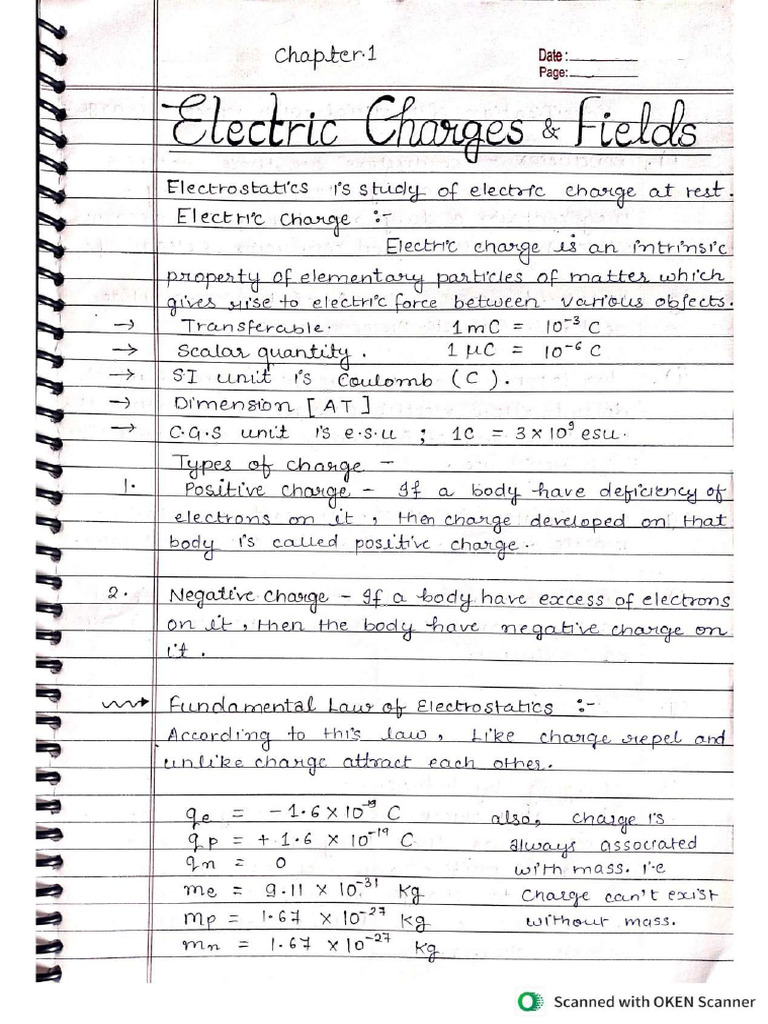 Chapter.1
Date:
Page:
Electric Charges & Fields
Electrostatics is study of electric charge at rest.
Electric charge :-
Electric charge is an intrinsic
property of elementary particles of matter which
gives rise to electric force between various objects.
→ Transferable. 1 mC = 10⁻³ C
→ Scalar quantity. 1 μC = 10⁻⁶ C
→ SI unit is Coulomb (C).
→ Dimension [AT]
→ C.G.S unit is e.s.u ; 1C = 3 × 10⁹ esu.
Types of charge -
1. Positive charge - If a body have deficiency of
electrons on it, then charge developed on that
body is called positive charge.
2. Negative charge - If a body have excess of electrons
on it, then the body have negative charge on
it.
Fundamental Law of Electrostatics :-
According to this law, Like charge repel and
unlike charge attract each other.
qe = - 1.6 × 10⁻¹⁹ C
qp = + 1.6 × 10⁻¹⁹ C
qn = 0
me = 9.11 × 10⁻³¹ kg
mp = 1.67 × 10⁻²⁷ kg
mn = 1.67 × 10⁻²⁷ kg
also, charge is
always associated
with mass. i.e
charge can't exist
without mass.
Scanned with OKEN Scanner